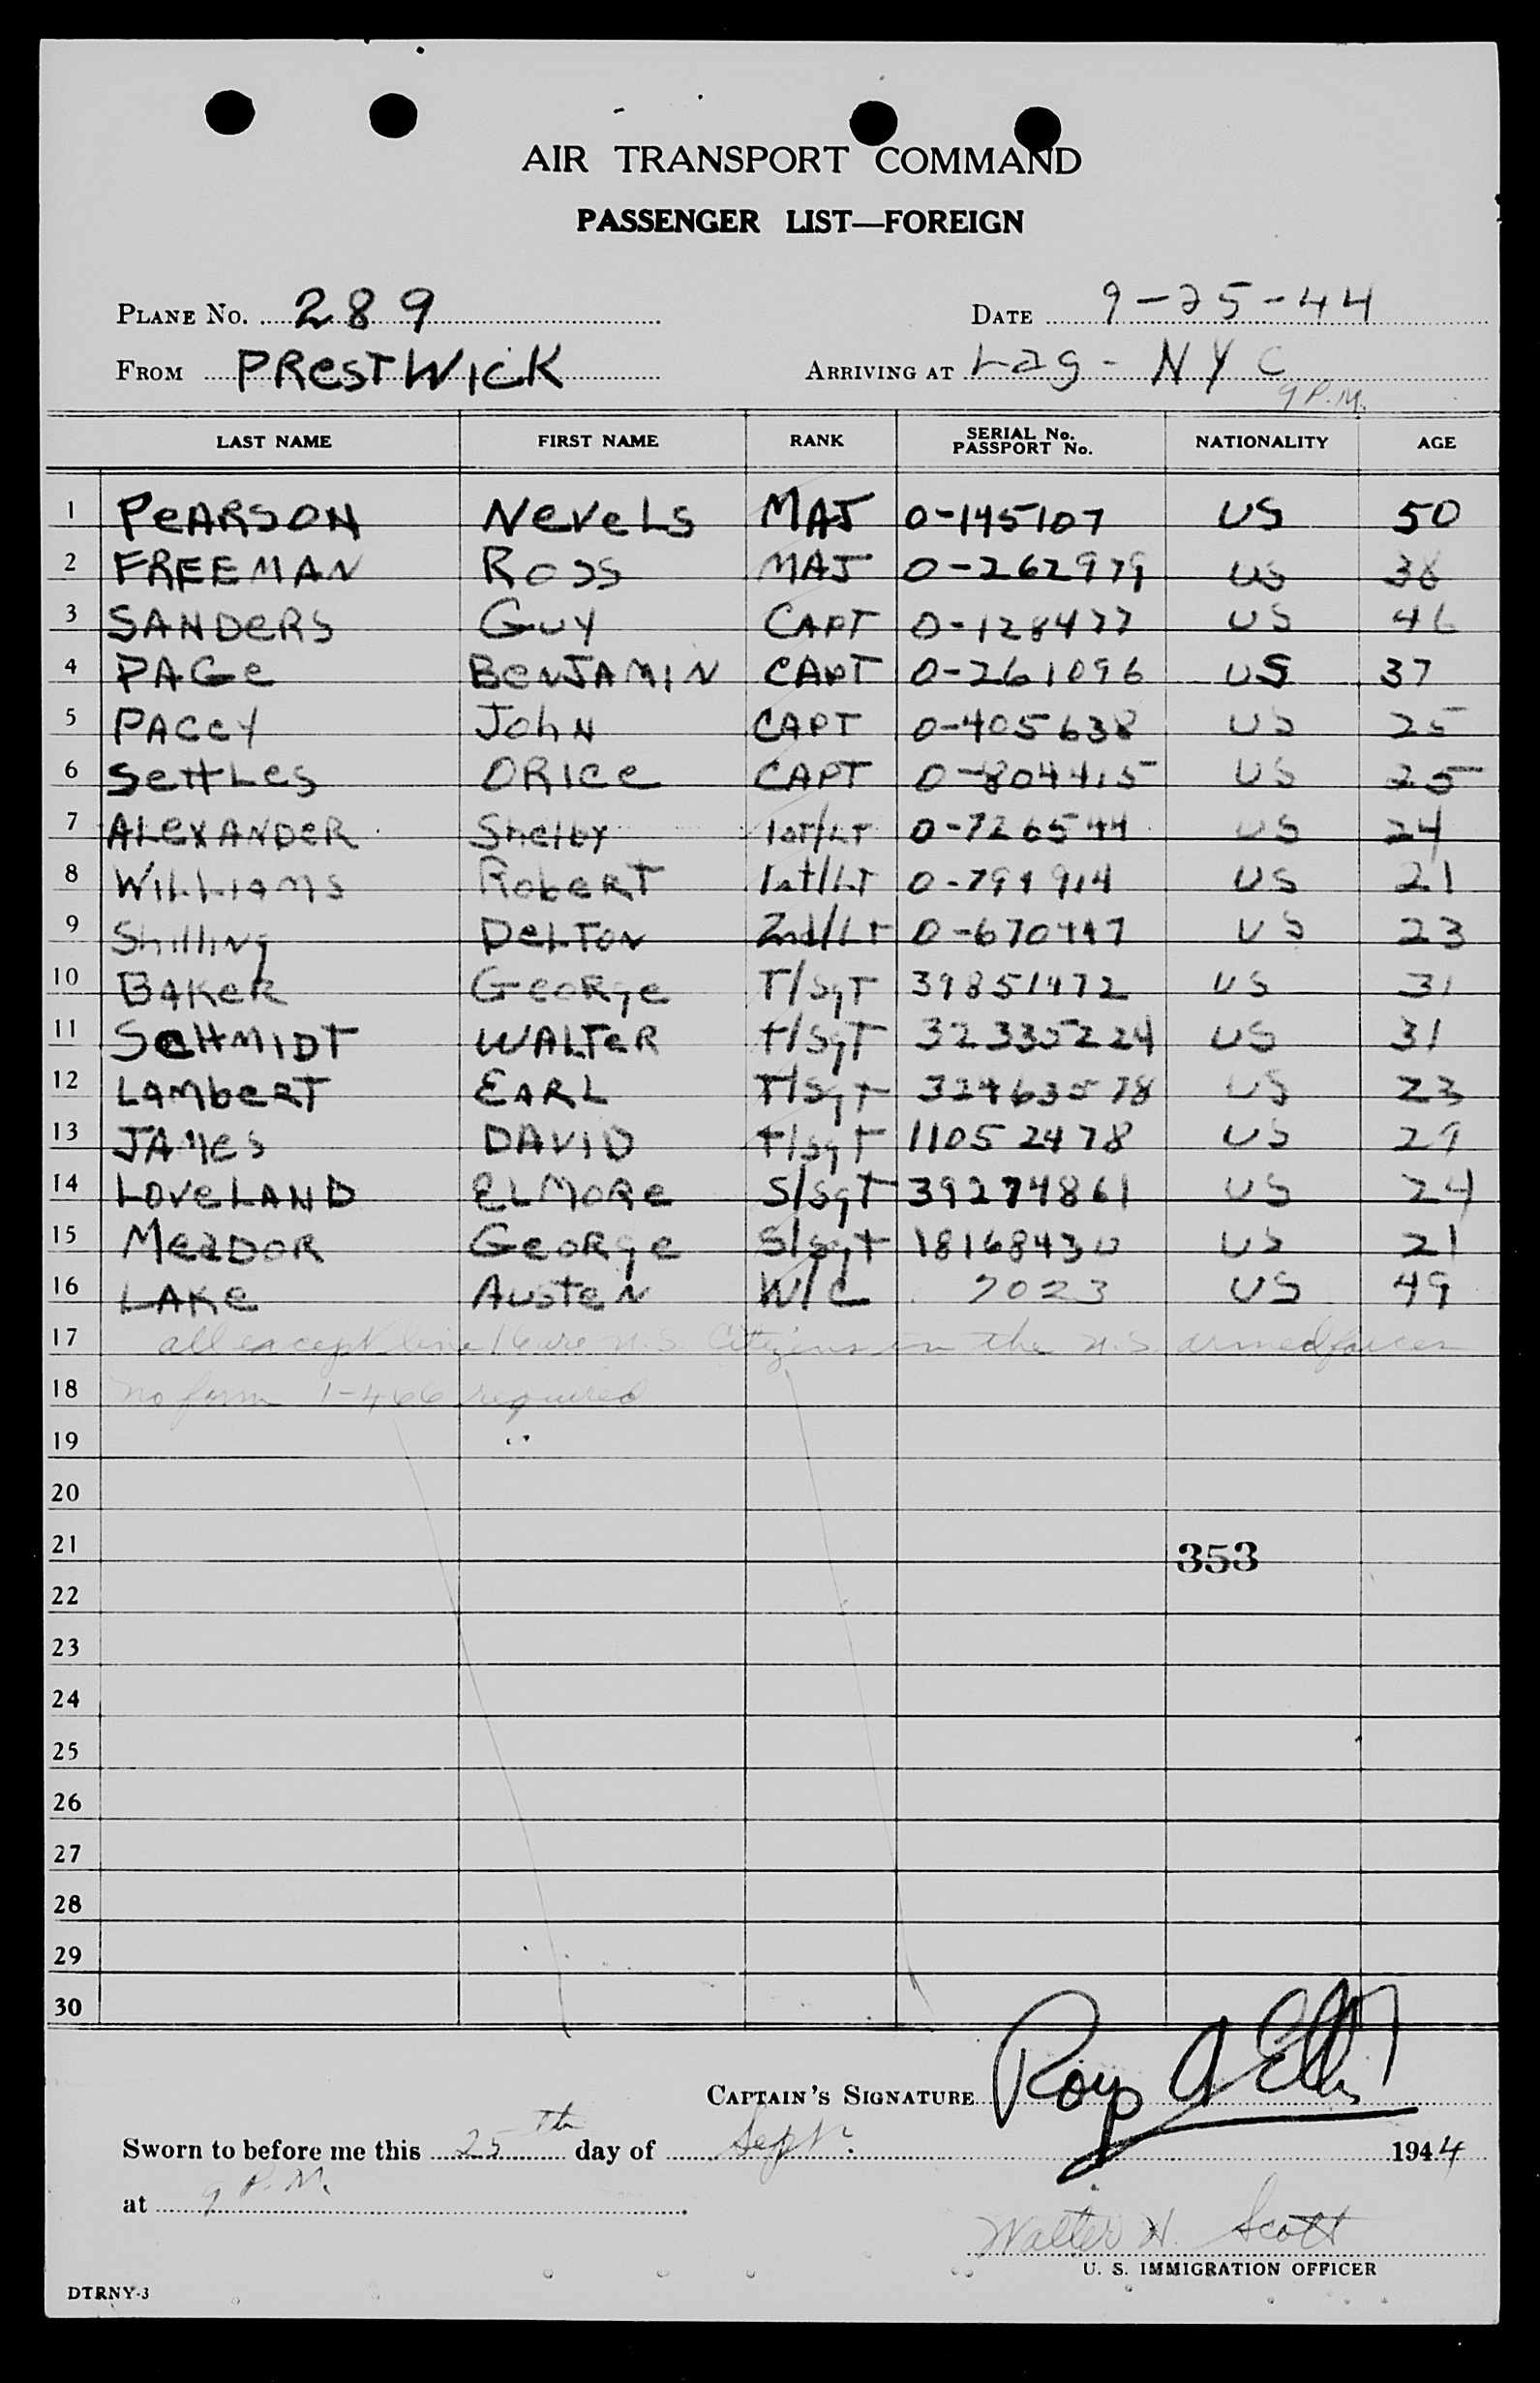 AIR TRANSPORT COMMAND
PASSENGER LIST—FOREIGN
PLANE No. 289 DATE 9-25-44
FROM PRESTWICK ARRIVING AT Lag - NYC
9 P.M.
LAST NAME FIRST NAME RANK SERIAL No. PASSPORT No. NATIONALITY AGE
1 PeARSON NeveLs MAJ 0-145107 US 50
2 FREEMAN Ross MAJ 0-262979 US 38
3 SANDeRS Guy CAPT 0-128477 US 46
4 PAGe BeNJAMIN CAPT 0-261096 US 37
5 PACey JohN CAPT 0-405638 US 25
6 SettLes ORICe CAPT 0-804415 US 25
7 ALexANDeR Shelby 1st/Lt 0-726544 US 24
8 WiLLiams RobeRT 1st/Lt US 21
9 ShilliNg DeLTON 2nd/Lt 0-670447 US 23
10 BAKeR GeoRge T/SgT 39851472 US 31
11 ScHMIDT WALTeR T/SgT 32335224 US 31
12 LAmbeRT EARL T/SgT 32463578 US 23
13 JAMes DAVID T/SgT 11052478 US 29
14 LOVeLAND ELMORe S/SgT 39274861 US 24
15 MeaDOR GeoRge S/Sgt 18168430 US 21
16 LAKe AusteN W/C 7023 US 49
17 all except line 16 are U.S. Citizens in the U.S. armed forces
18 no form 1-466 required
19
20
21 353
22
23
24
25
26
27
28
29
30
CAPTAIN'S SIGNATURE Roy A Ellis
Sworn to before me this 25th day of Sept. 1944
at 9 P.M.
Walter H. Scott
U. S. IMMIGRATION OFFICER
DTRNY-3